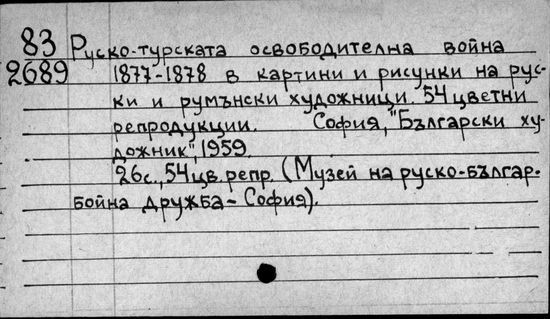 83 Руско-турската освободителна война
2689 1877-1878 в картини и рисунки на рус-
ки и румънски художници. 54 цветни
репродукции. София, "Български ху-
дожник", 1959.
26с., 54 цв. репр. (Музей на руско-българ.
бойна дружба - София).